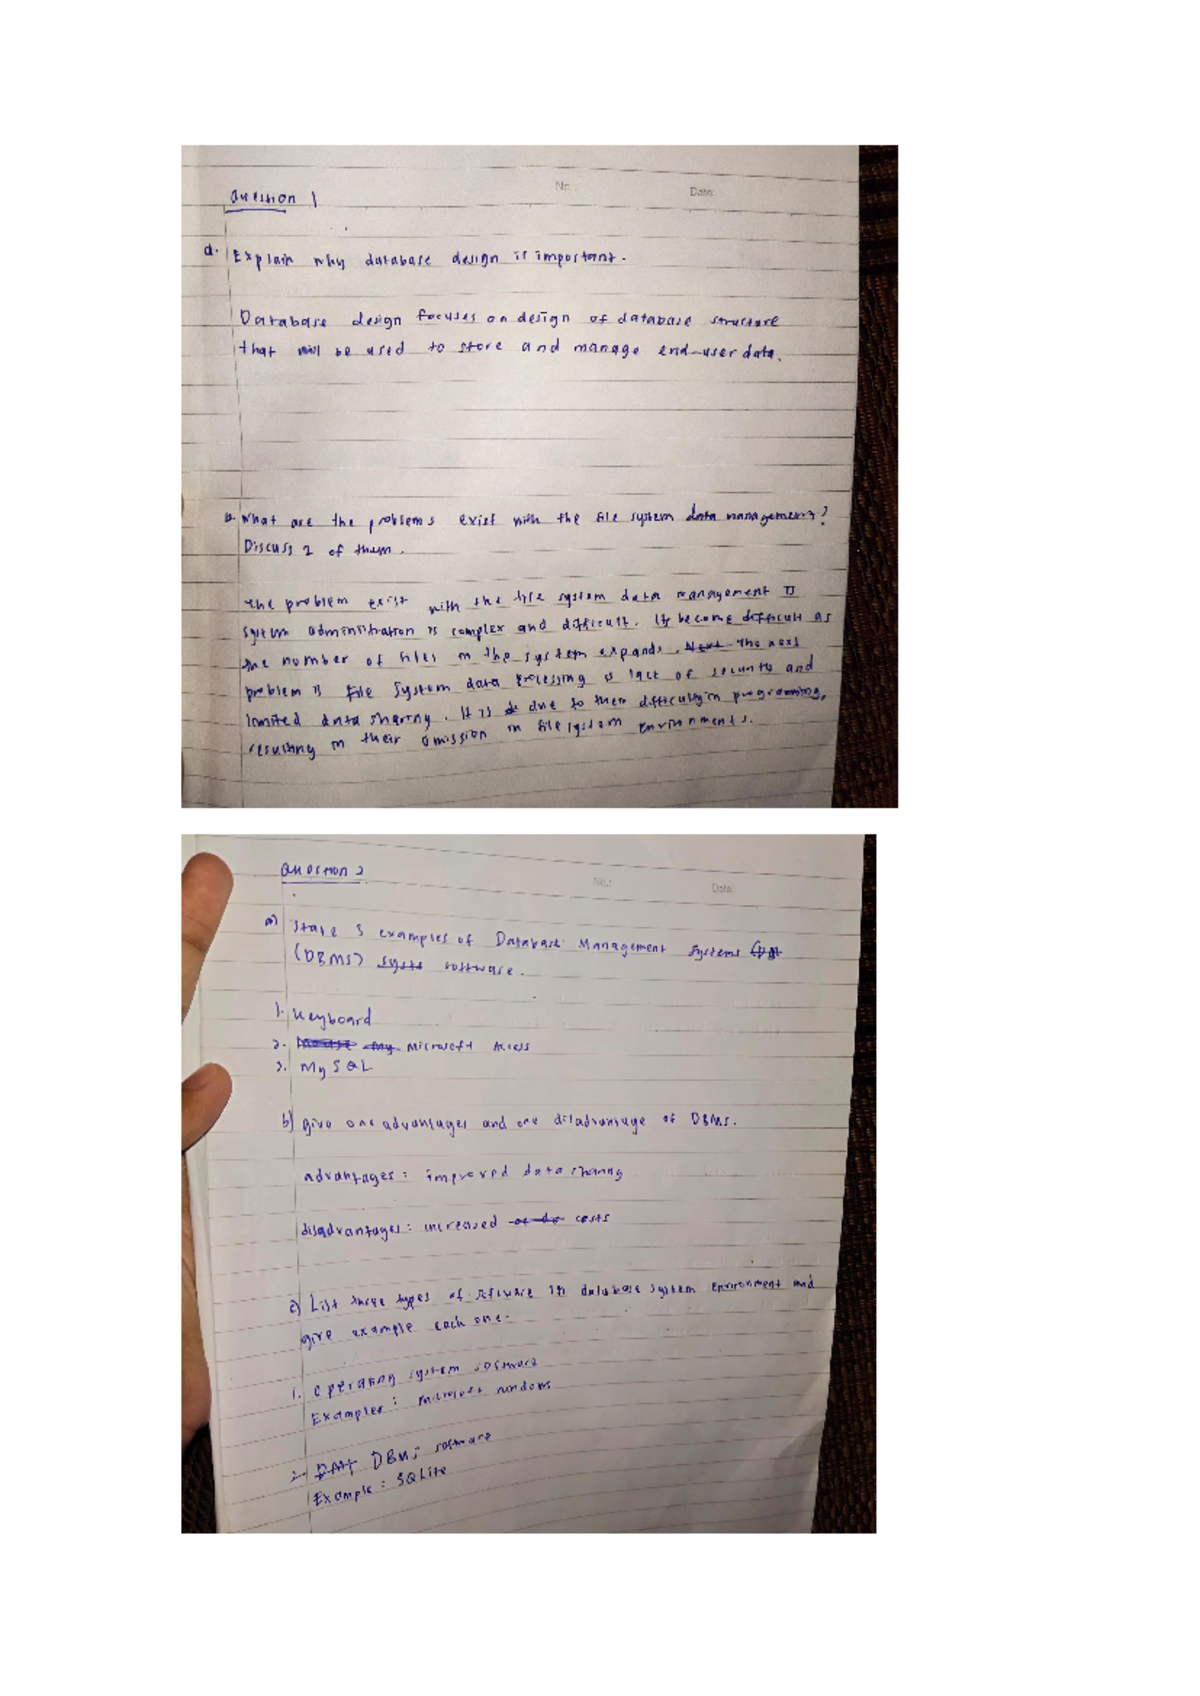 No:
Date:
Question 1
a. Explain why database design is important.
Database design focuses on design of database structure
that will be used to store and manage end-user data.
b. What are the problems exist with the file system data management?
Discuss 2 of them.
The problem exist with the file system data management is
system administration is complex and difficult. It become difficult as
the number of files in the system expands. Next The next
problem is file system data processing is lack of security and
limited data sharing. It is due to them difficulty in programming,
resulting in their omission in file system environments.
Question 2
No.:
Date:
a) State 3 examples of Database Management Systems
(DBMS) syste software.
1. Keyboard
2. Mouse My Microsoft Access
3. MySQL
b) give one advantages and one disadvantage of DBMS.
advantages: improved data sharing
disadvantages: increased costs
c) List three types of software in database system environment and
give example each one.
1. Operating system software
Examples: microsoft windows
2. DBMS software
Example: SQLite